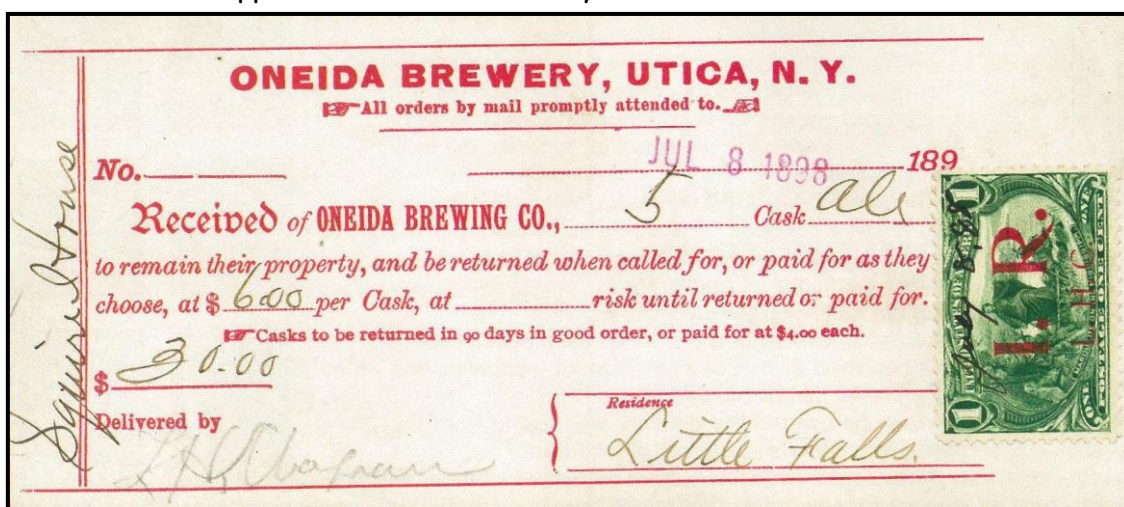 ONEIDA BREWERY, UTICA, N. Y.
All orders by mail promptly attended to.
No. JUL 8 1898 189
Received of ONEIDA BREWING CO., 5 Cask ale
to remain their property, and be returned when called for, or paid for as they
choose, at $ 6.00 per Cask, at risk until returned or paid for.
Casks to be returned in 90 days in good order, or paid for at $4.00 each.
$ 30.00
Delivered by
Residence
Little Falls.
Squires House
1 1
I. R.
L H C
1 ONE